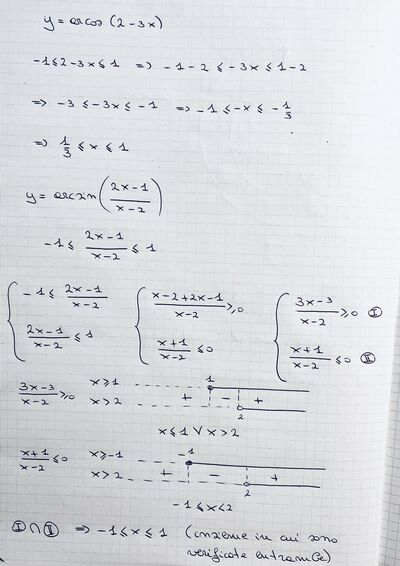 y = arcos (2-3x)
-1 ≤ 2-3x ≤ 1 => -1-2 ≤ -3x ≤ 1-2
=> -3 ≤ -3x ≤ -1 => -1 ≤ -x ≤ -1/3
=> 1/3 ≤ x ≤ 1
y = arcsin ((2x-1)/(x-2))
-1 ≤ (2x-1)/(x-2) ≤ 1
{ -1 ≤ (2x-1)/(x-2) { (x-2+2x-1)/(x-2) ≥ 0 { (3x-3)/(x-2) ≥ 0 Ⓘ
(2x-1)/(x-2) ≤ 1 (x+1)/(x-2) ≤ 0 (x+1)/(x-2) ≤ 0 Ⅱ
(3x-3)/(x-2) ≥ 0 x ≥ 1 1
x > 2 + - + 2
x ≤ 1 ∨ x > 2
(x+1)/(x-2) ≤ 0 x ≥ -1 -1
x > 2 + - + 2
-1 ≤ x < 2
Ⓘ ∩ Ⅱ => -1 ≤ x ≤ 1 (insieme in cui sono
verificate entrambe)